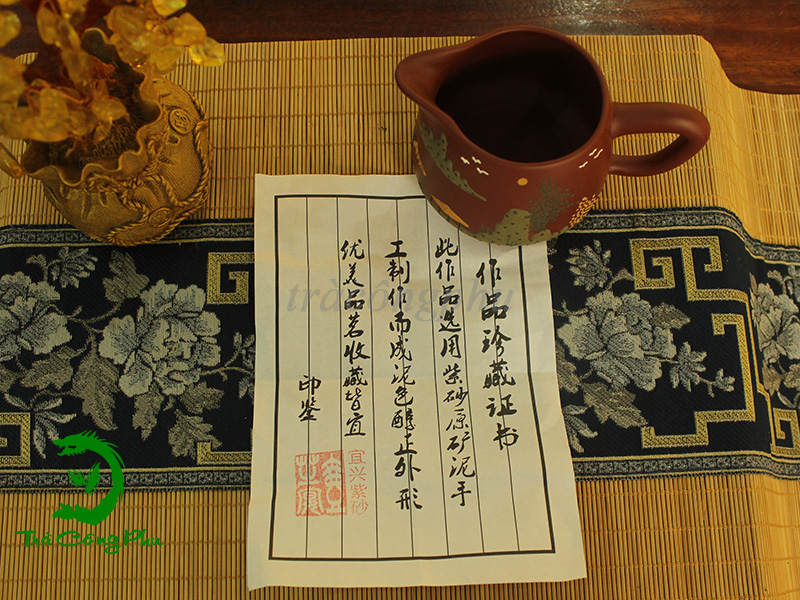 作品珍藏证书
此作品选用紫砂原矿泥手
工制作而成泥色醇正外形
优美品茗收藏皆宜
印鉴
宜兴紫砂
trà công phu
Trà Công Phu